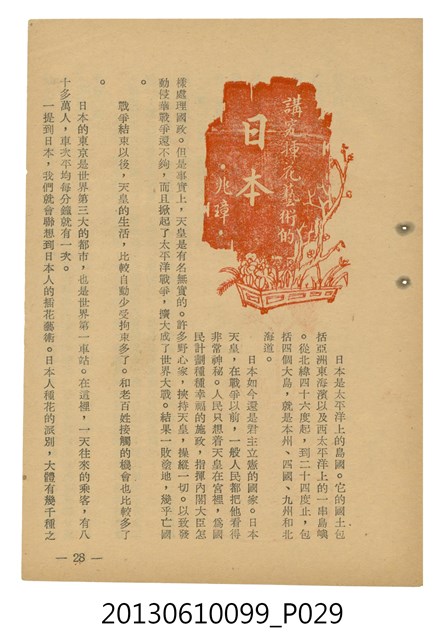 講究插花藝術的
日本
·兆璋·
日本是太平洋上的島國。它的國土包
括亞洲東海濱以及西太平洋上的一串島嶼
。從北緯四十六度起,到二十四度止,包
括四個大島,就是本州、四國、九州和北
海道。
日本如今還是君主立憲的國家。日本
天皇,在戰爭以前,一般人民都把他看得
非常神秘。人民只想着天皇在宮裡,為國
民計劃種種幸福的施政,指揮內閣大臣怎
樣處理國政。但是事實上,天皇是有名無實的。許多野心家,挾持天皇,操縱一切。以致發
動侵華戰爭還不夠,而且掀起了太平洋戰爭,擴大成了世界大戰。結果一敗塗地,幾乎亡國
。
戰爭結束以後,天皇的生活,比較自動少受拘束多了。和老百姓接觸的機會也比較多了
。
日本的東京是世界第三大的都市,也是世界第一車站。在這裡,一天往來的乘客,有八
十多萬人,車次平均每分鐘就有一次。
一提到日本,我們就會聯想到日本人的插花藝術。日本人種花的派別,大體有幾千種之
— 28 —
20130610099_P029